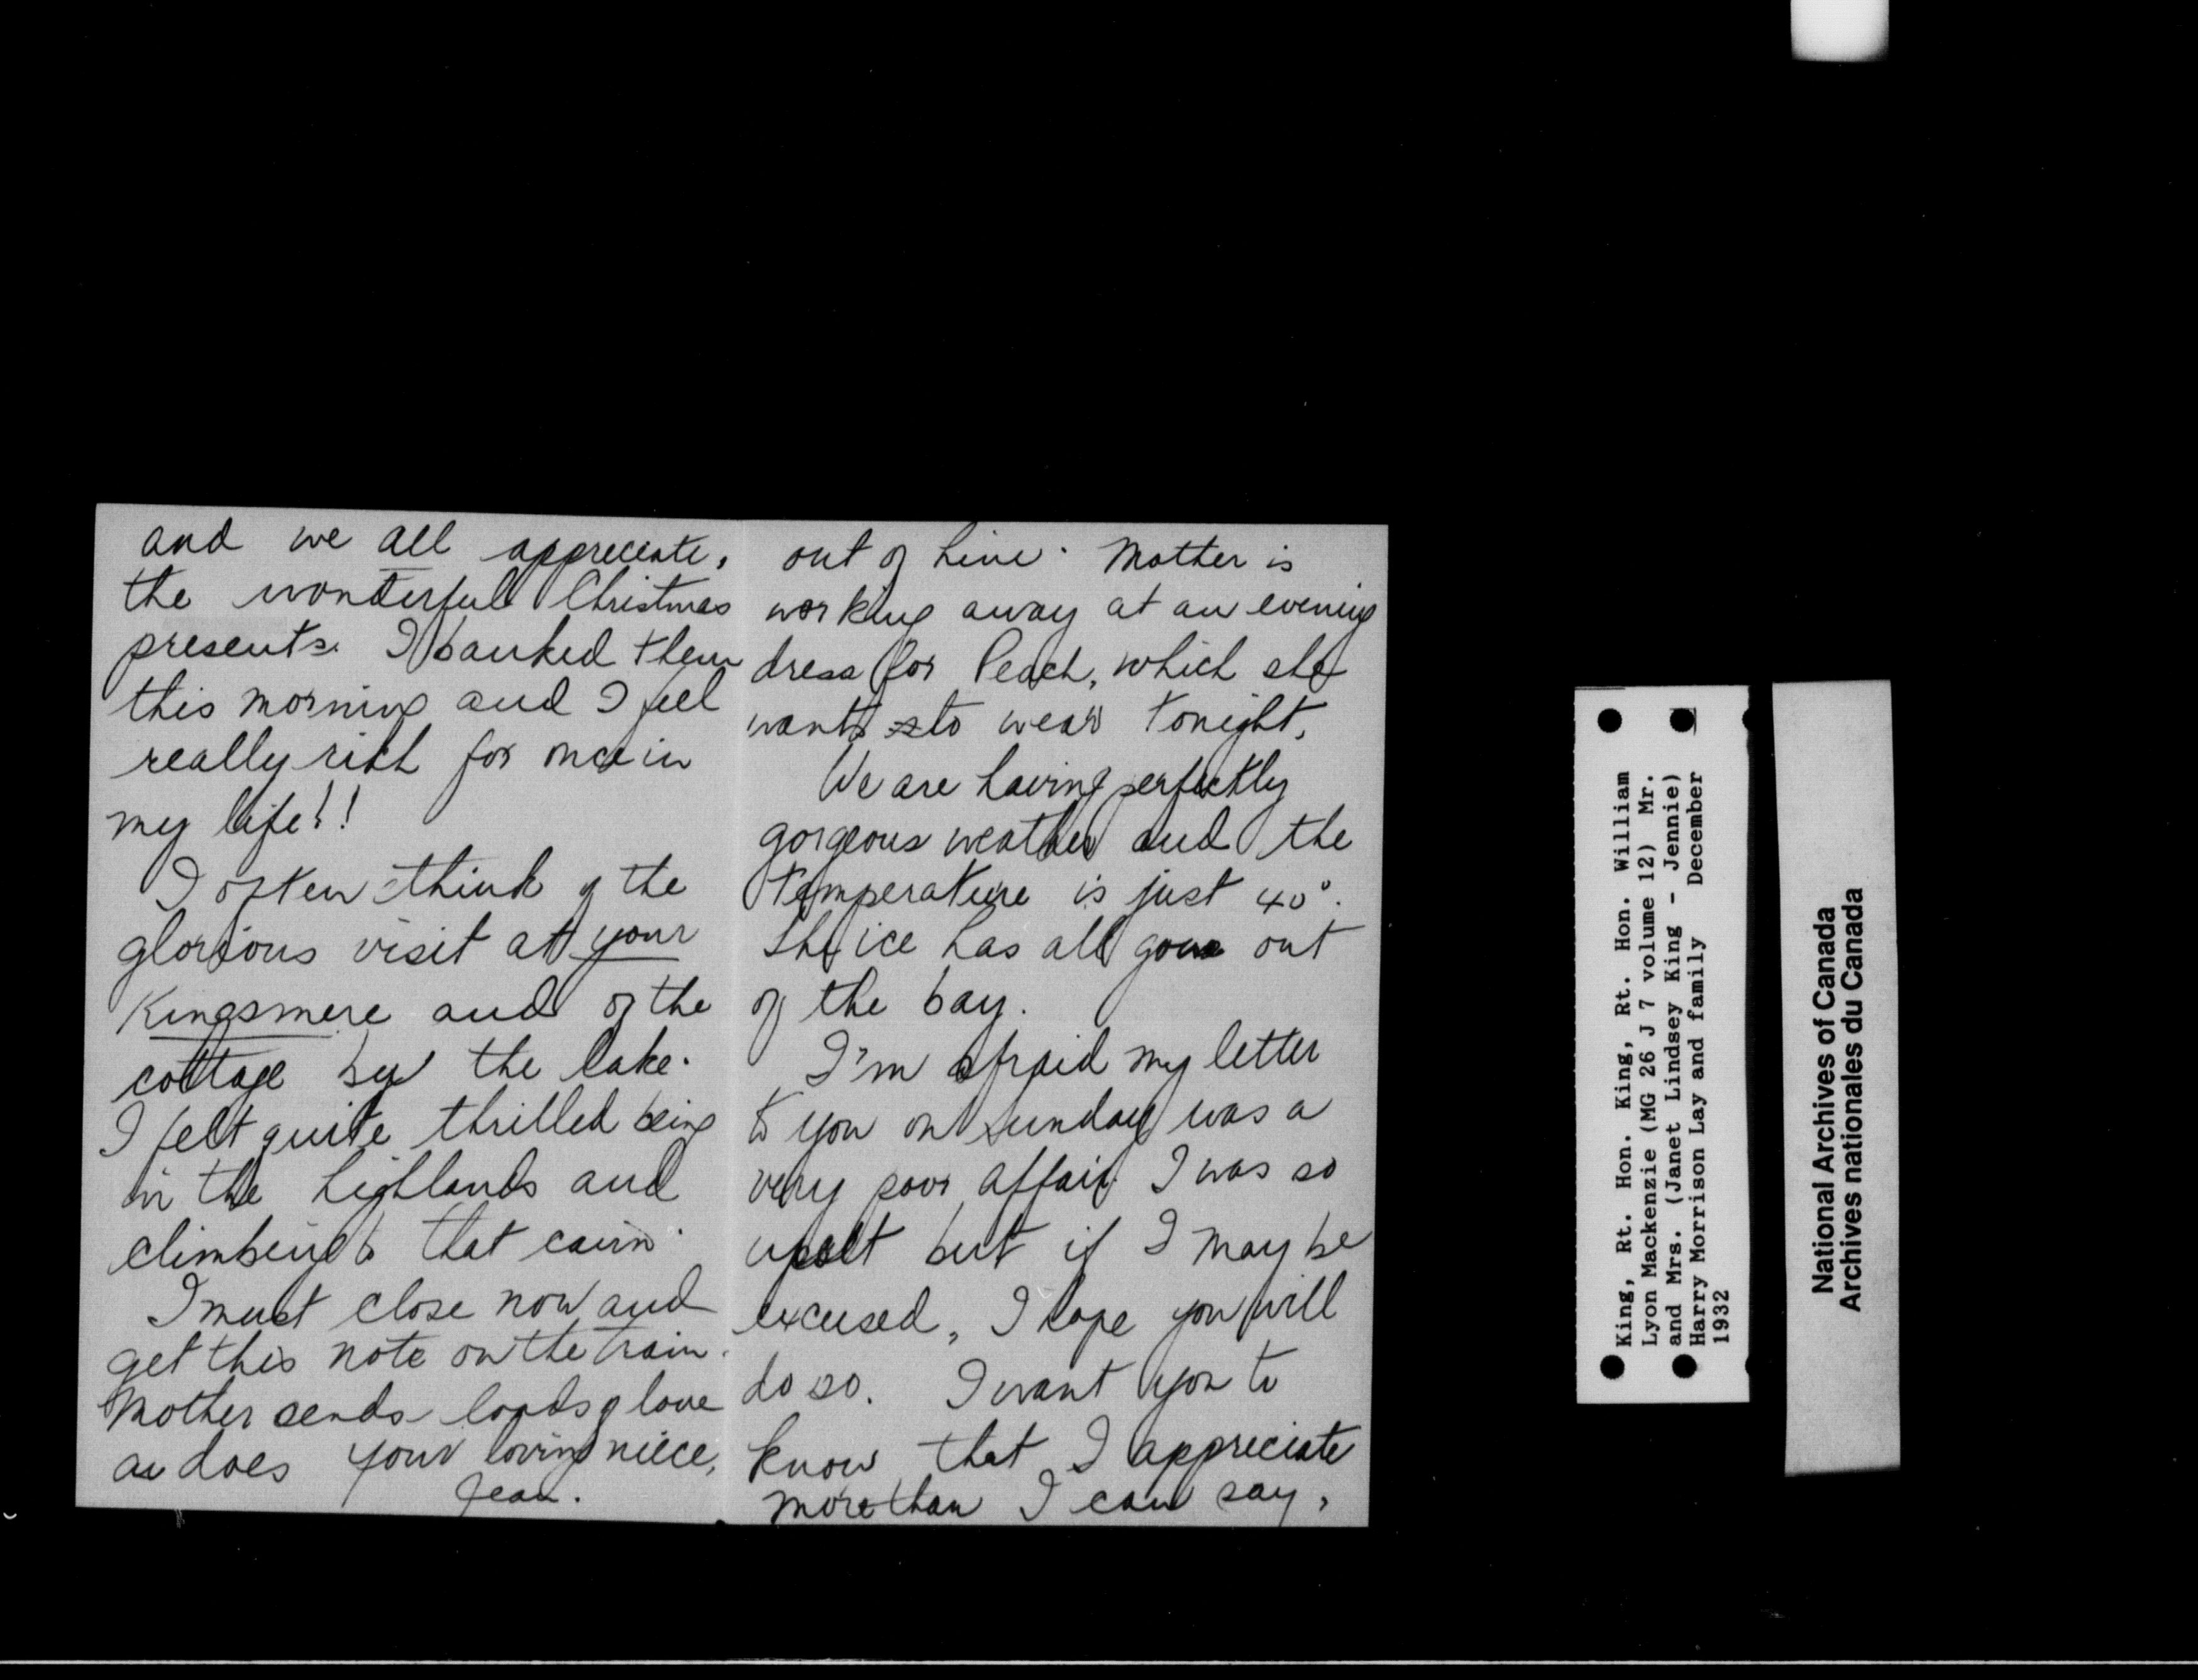 and we all appreciate,
the wonderful Christmas
presents. I banked them
this morning and I feel
really rich for once in
my life!!
I often think of the
glorious visit at your
Kingsmere and of the
cottage by the lake.
I felt quite thrilled being
in the highlands and
climbing to that cairn.
I must close now and
get this note on the train.
Mother sends loads of love
as does your loving niece,
Jean.
out of Mother is
working away at an evening
dress for Peach, which she
wants to wear tonight.
We are having perfectly
gorgeous weather and the
temperature is just 40°.
The ice has all gone out
of the bay.
I'm afraid my letter
to you on Sunday was a
very poor affair. I was so
upset but if I may be
excused, I hope you will
do so. I want you to
know that I appreciate
more than I can say,
King, Rt. Hon. King, Rt. Hon. William
Lyon Mackenzie (MG 26 J 7 volume 12) Mr.
and Mrs. (Janet Lindsey King - Jennie)
Harry Morrison Lay and family December
1932
National Archives of Canada
Archives nationales du Canada